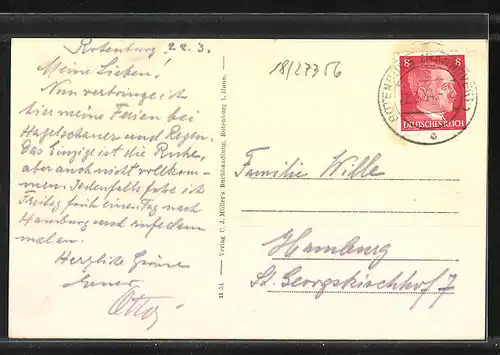 Rotenburg 22.3.
Meine Lieben!
Nun verbringe ich
hier meine Ferien bei
Hagelschauer und Regen.
Das Einzige ist die Ruhe,
aber auch nicht vollkom-
men. Jedenfalls fahre ich
Freitag früh einen Tag nach
Hamburg und rufe dann
mal an.
Herzliche Grüsse
Euer
Otto
11 51
Verlag C. J. Müller's Buchhandlung, Rotenburg i. Hann.
18/27356
8 8
DEUTSCHES REICH
ROTENBURG
Familie Wille
Hamburg
St. Georgskirchhof 7